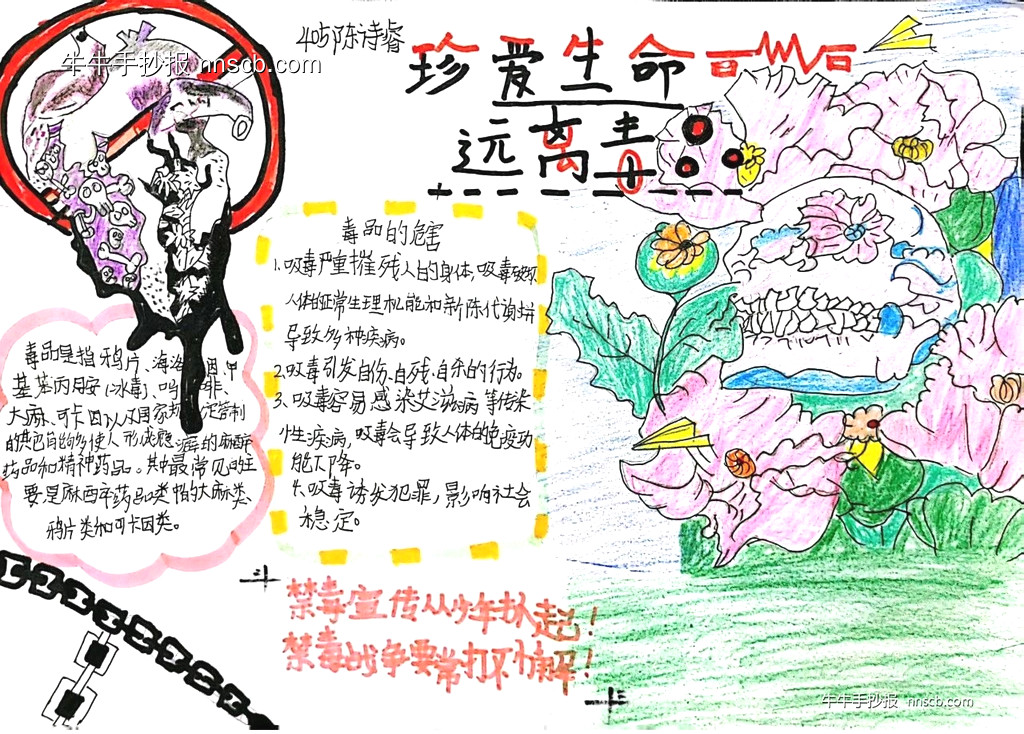 牛牛手抄报 nnscb.com
405陈诗睿
珍爱生命
远离毒
毒品的危害
1.吸毒严重摧残人的身体,吸毒破坏
人体的正常生理机能和新陈代谢并
导致多种疾病。
2.吸毒引发自伤、自残、自杀的行为。
3、吸毒容易感染艾滋病等传染
性疾病,吸毒会导致人体的免疫功
能下降。
4.吸毒诱发犯罪,影响社会
稳定。
毒品是指鸦片、海洛因、甲
基苯丙胺(冰毒)、吗啡、
大麻、可卡因以及国家规定管制
的其它能够使人形成瘾癖的麻醉
药品和精神药品。其中最常见的主
要是麻醉药品类中的大麻类、
鸦片类和可卡因类。
禁毒宣传从少年抓起!
禁毒战争要常打不懈!
牛牛手抄报 nnscb.com